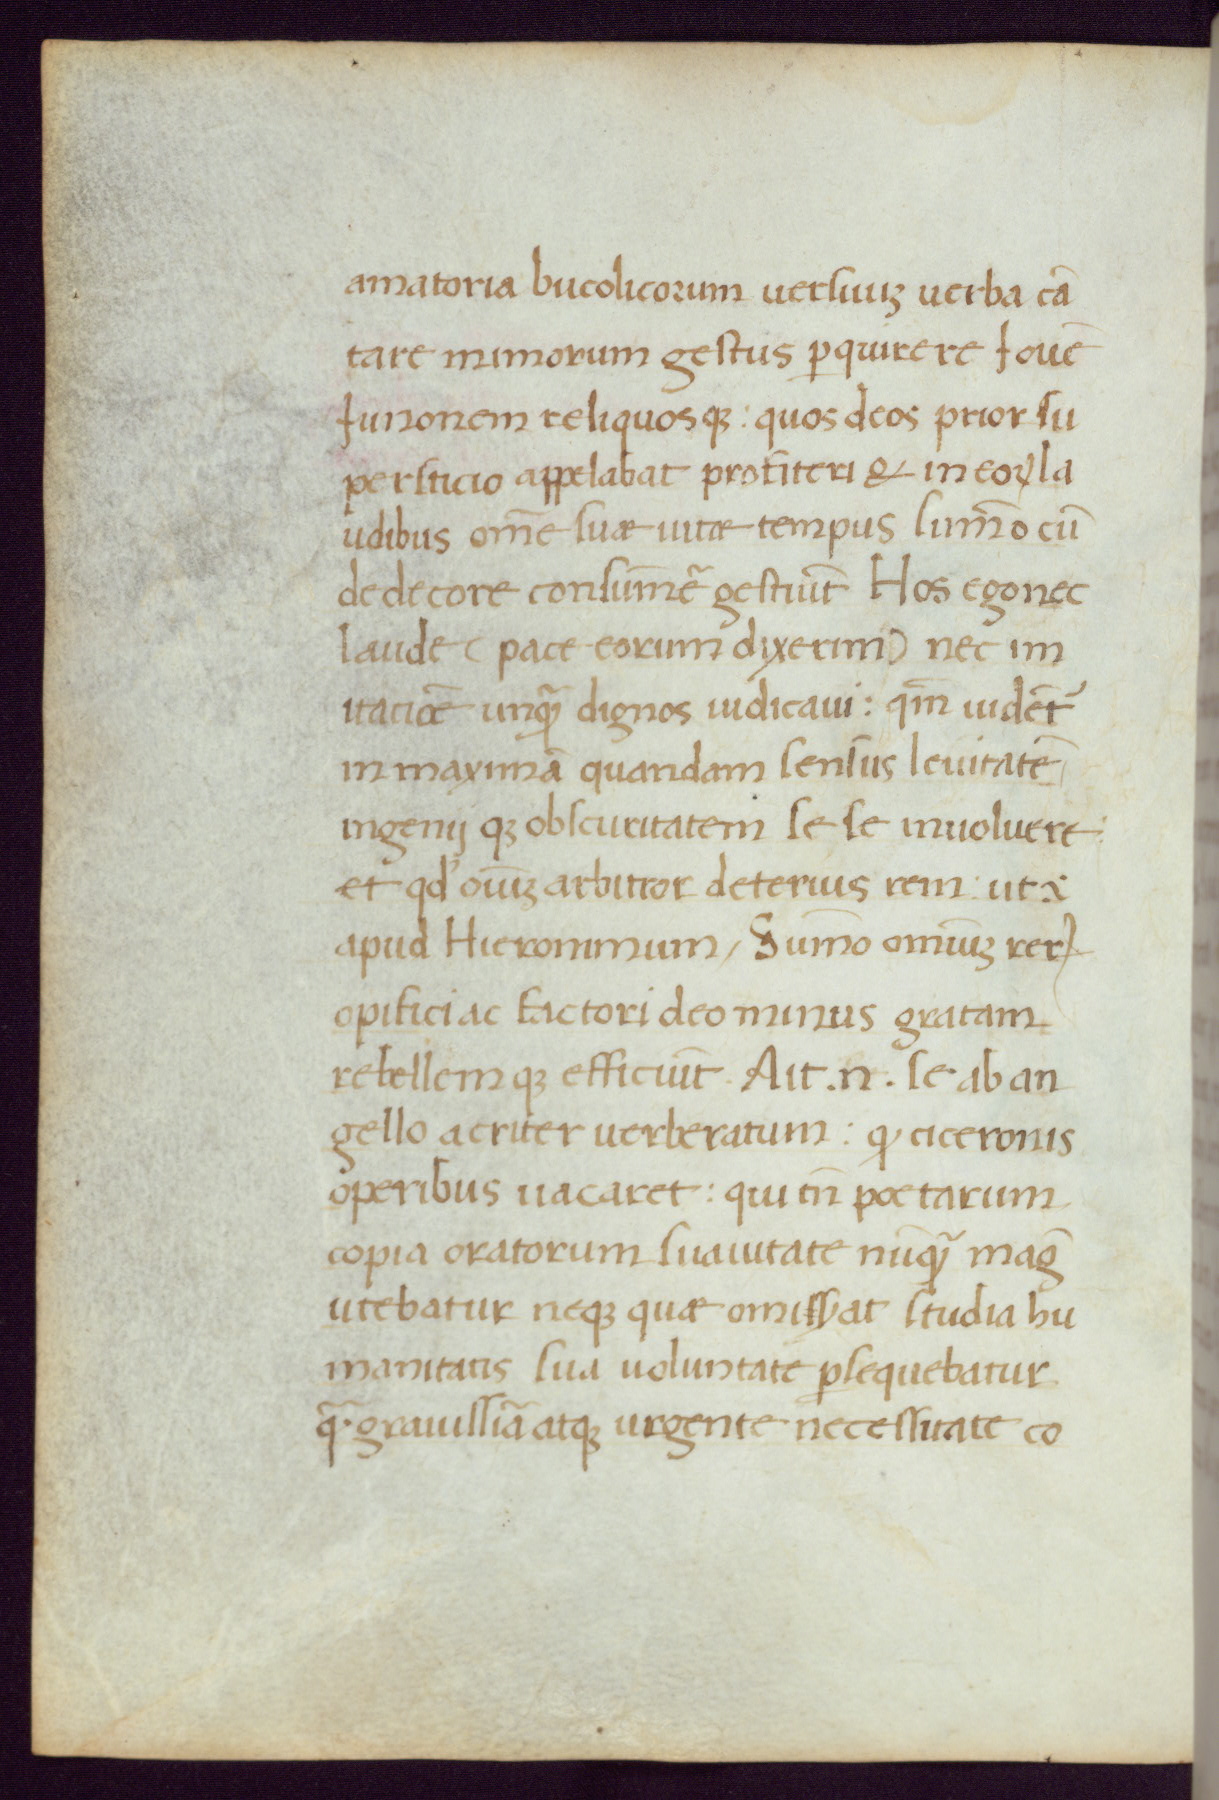 amatoria bucolicorum uersuuꝫ uerba cā
tare mimorum gestus ꝑquirere Iouē
Iunonem reliquosqꝫ: quos deos prior su
persticio appelabat profiteri & in eoꝝ la
udibus om̄e suæ uitæ tempus sum̄o cū
dedecore consum̄e gestiūt Hos ego nec
laude (pace eorum dixerim) nec im
itatiōe unqꝫ̄ dignos iudicaui: qm̄ uident᷑
in maximā quandam sensus leuitatē
ingenij qꝫ obscuritatem se se inuoluere:
et qd' oīuꝫ arbitror deterius rem: ut ē
apud Hieronimum / Sum̄o omīuꝫ reꝝ
opifici ac factori deo minus gratam
rebellem qꝫ efficiūt. Ait .n. se ab an
gello acriter uerberatum: ꝙ ciceronis
operibus uacaret: qui tn̄ poetarum
copia oratorum suauitate nūqꝫ̄ maḡ
utebatur neqꝫ quæ omisſꝫat studia hu
manitatis sua uoluntate ꝑsequebatur
qꝫ̄. grauissīa atqꝫ urgente necessitate co